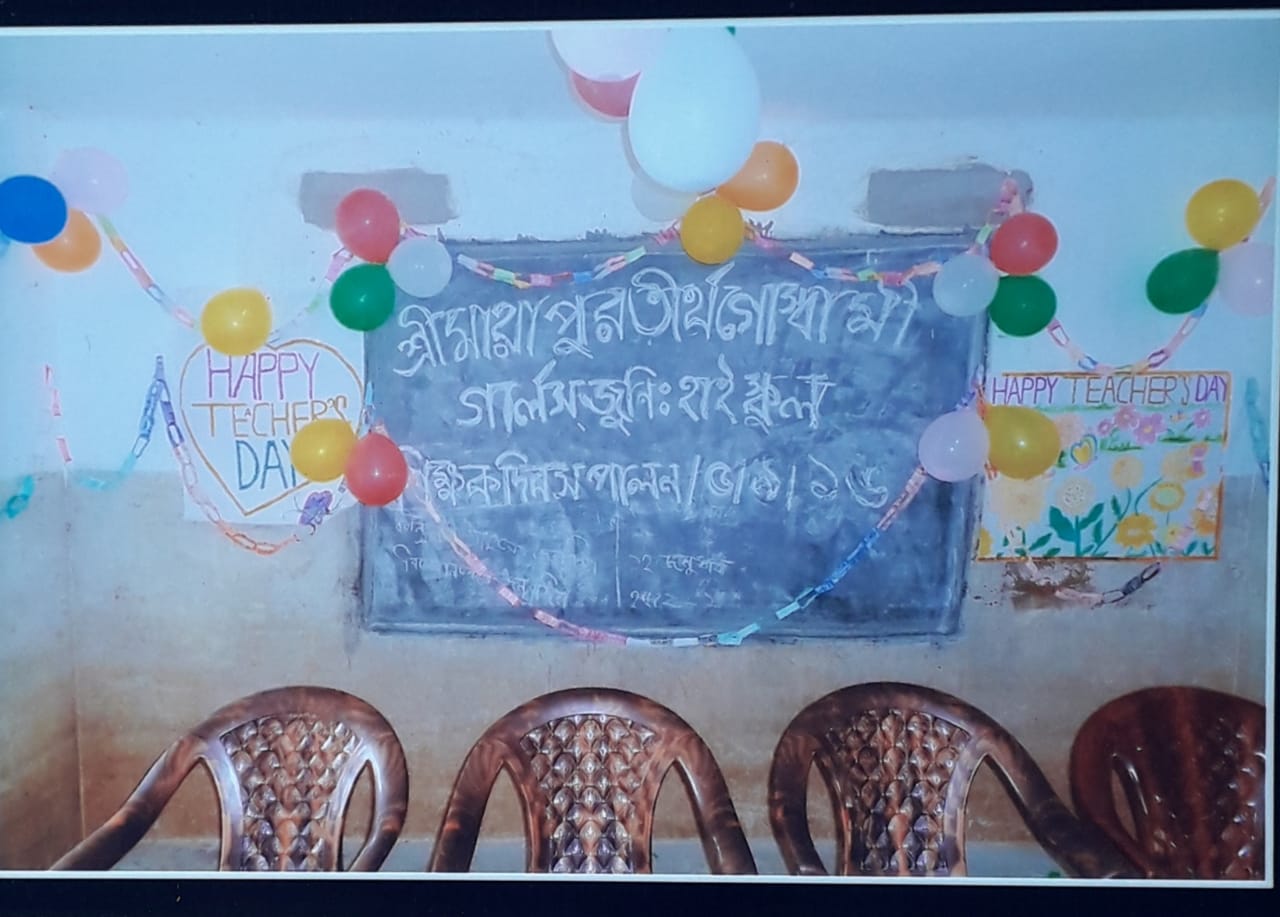 HAPPY
TEACHER'S
DAY
শ্রীমায়াপুর তীর্থ গোস্বামী
গার্লস জুনিঃ হাই স্কুল
শিক্ষক দিবস পালন/৫/৯/১৬
HAPPY TEACHER'S DAY